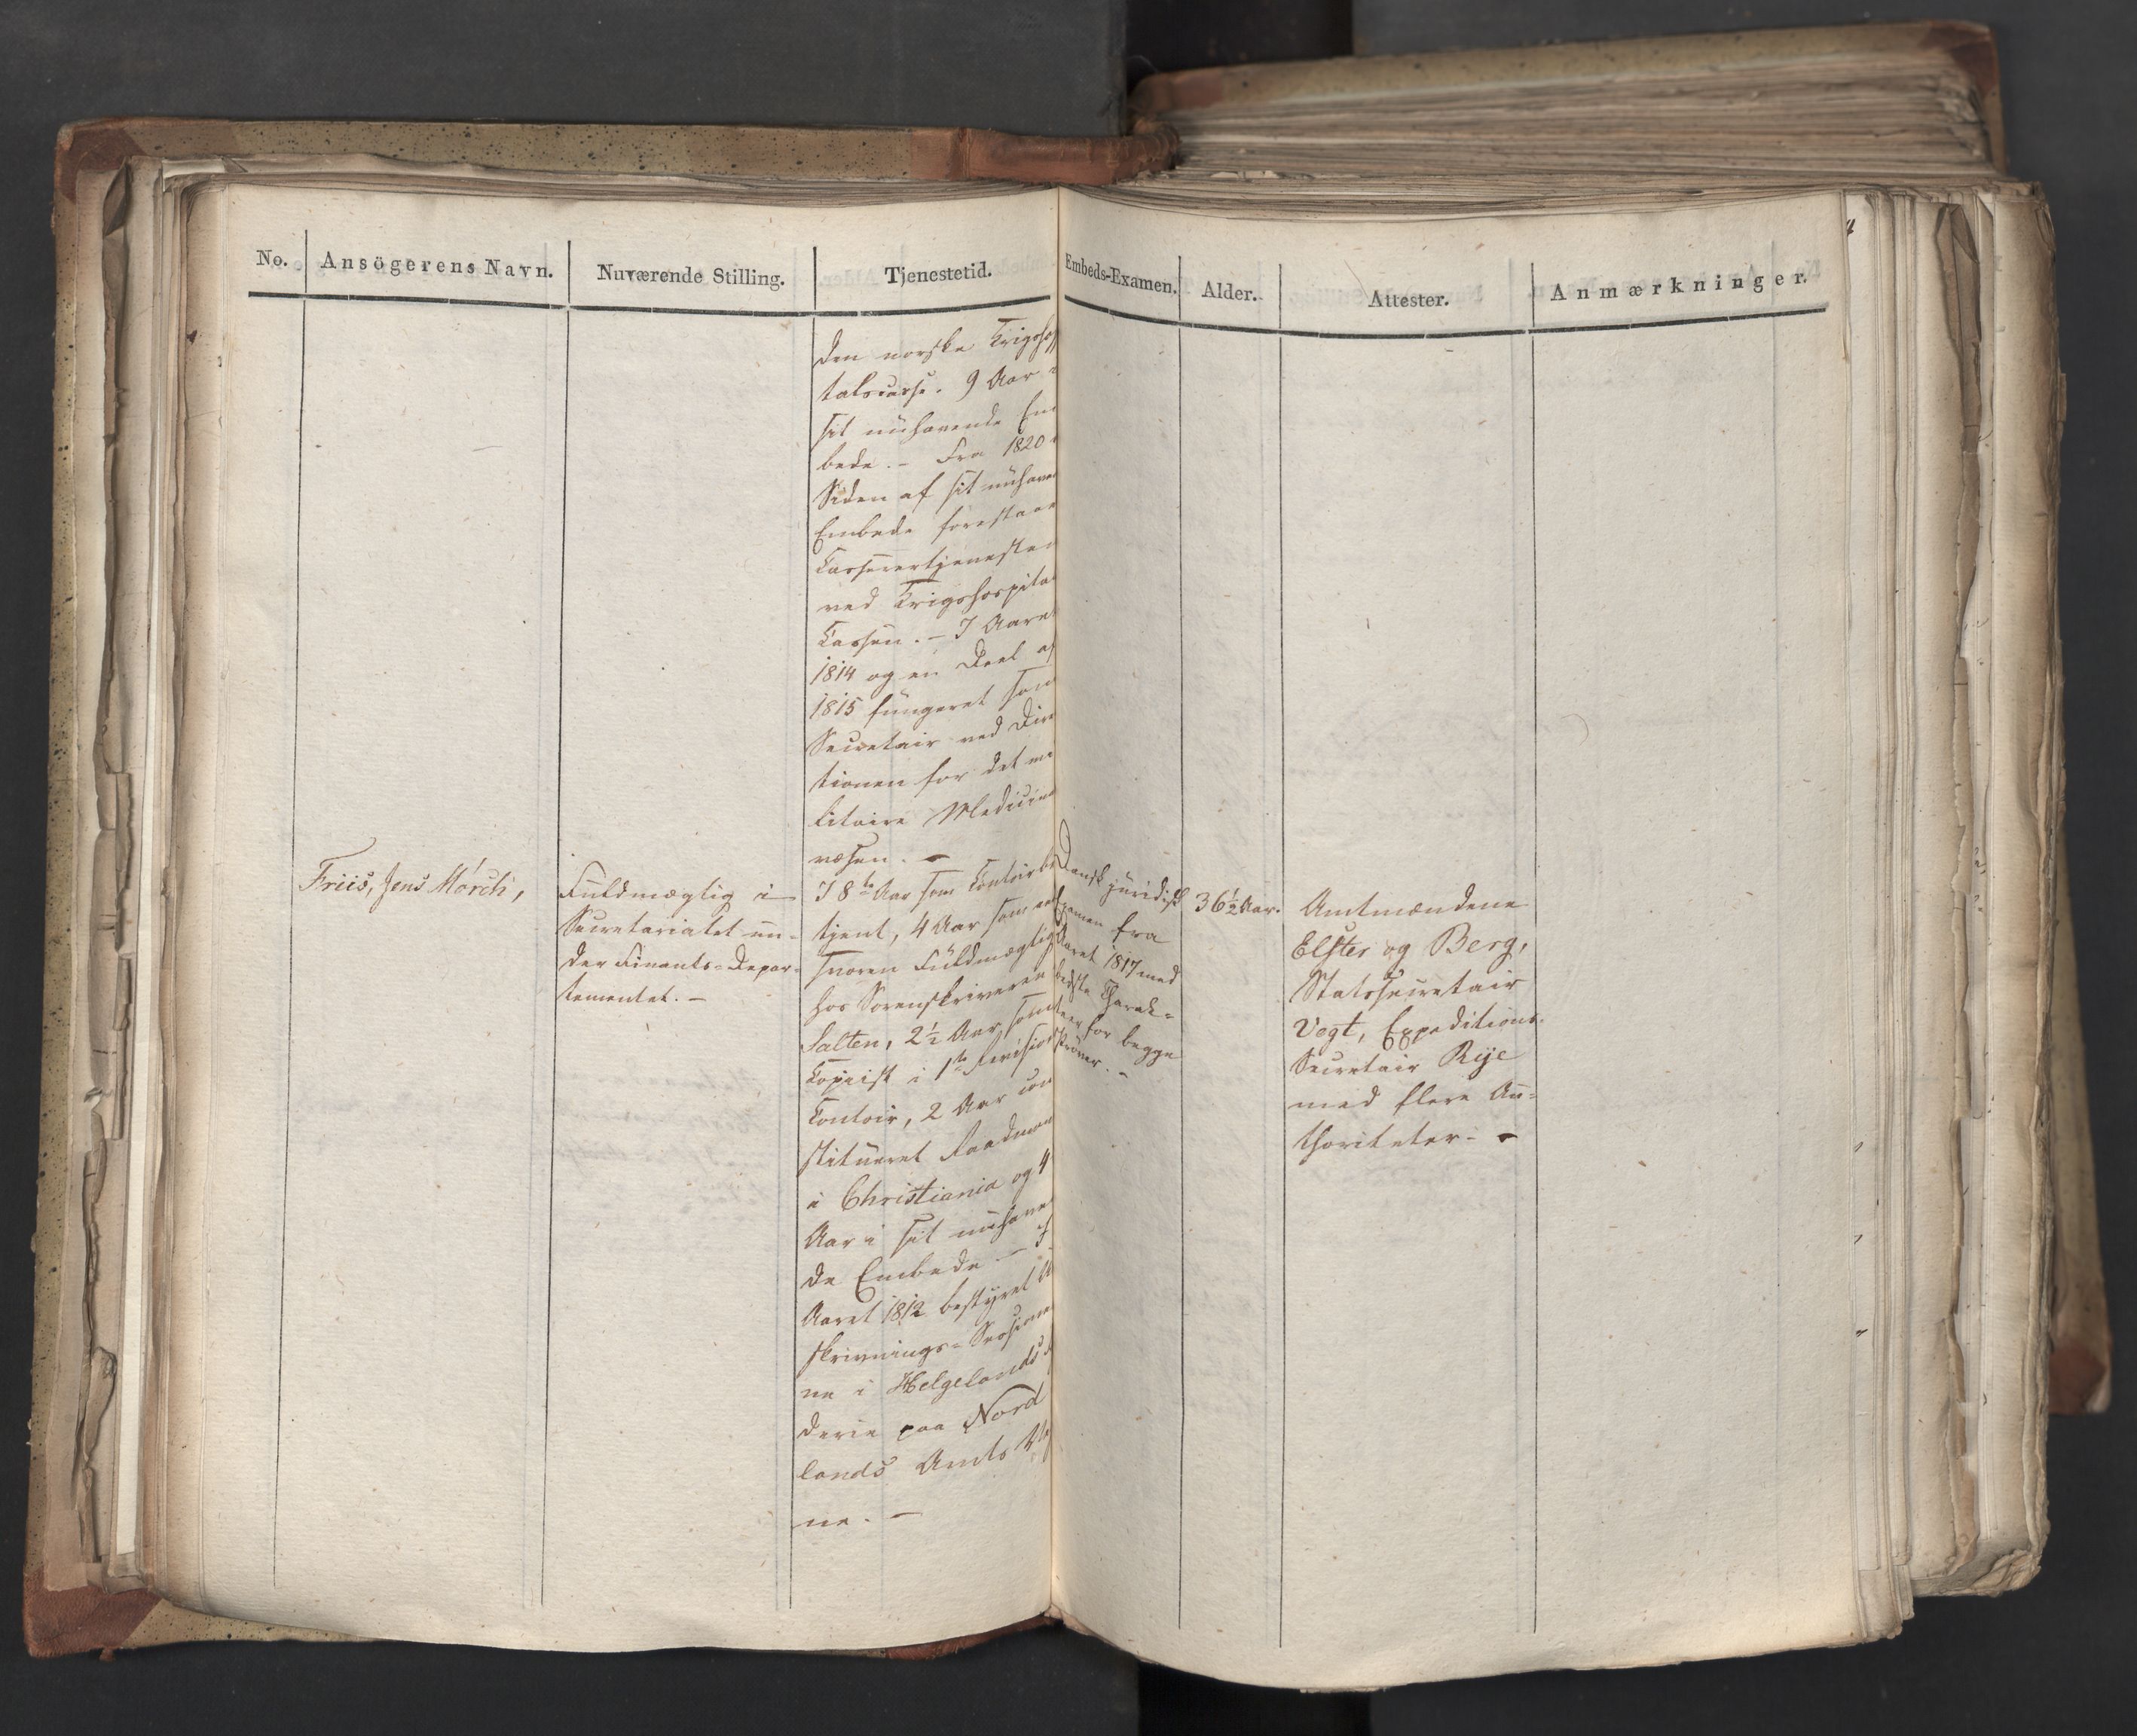 No. Ansögerens Navn. Nuværende Stilling. Tjenestetid. Embeds-Examen. Alder. Attester. Anmærkninger.
den norske Krigshos
talscasse. 9 Aar i
sit nuhavende Em
bede. - Fra 1820
Siden af sit nuhaven
Embede forestaaet
Casserertjenesten
ved Krigshospital
Cassen. - I Aaret
1814 og en Deel af
1815 fungeret som
Secretair ved Dire
tionen for det mi
litaire Medicinal
væsen. -
Friis, Jens Mørch,
Fuldmægtig i
Secretariatet un-
der Finants-Depar-
tementet. -
I 8te Aar som Contoirbe
tjent, 4 Aar som
svoren Fuldmægtig
hos Sorenskriveren
Salten, 2½ Aar som
Copiist i 1te Revisions
Contoir, 2 Aar con
stitueret Raadmand
i Christiania og 4
Aar i sit nuhaven
de Embede. - I
Aaret 1812 bestyret
skrivnings-Sessioner
ne i Helgelands
derie paa Nord
lands Amts
ne. -
Dansk juridisk
Examen fra
Aaret 1817 med
bedste Charak-
teer for begge
Prøver. -
36½ Aar.
Amtmændene
Elster og Berg,
Statssecretair
Vogt, Expeditions-
Secretair Rye
med flere Au-
thoriteter. -